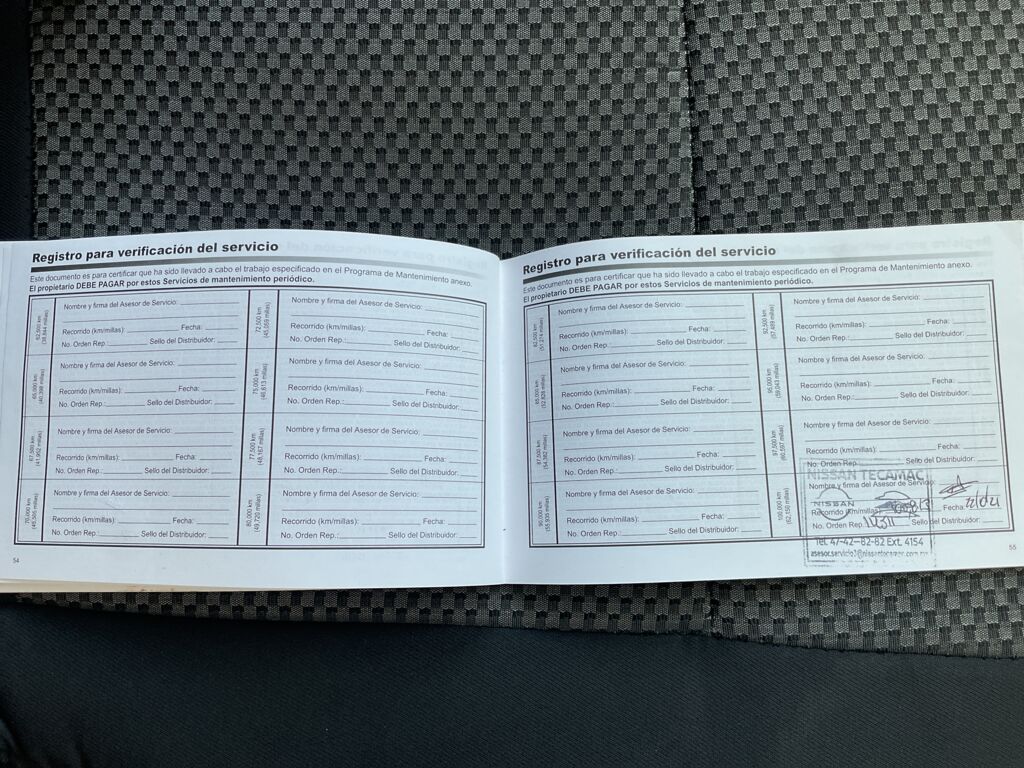 Registro para verificación del servicio
Este documento es para certificar que ha sido llevado a cabo el trabajo especificado en el Programa de Mantenimiento anexo.
El propietario DEBE PAGAR por estos Servicios de mantenimiento periódico.
62,500 km
(38,844 millas)
Nombre y firma del Asesor de Servicio:
Recorrido (km/millas): Fecha:
No. Orden Rep.: Sello del Distribuidor:
65,000 km
(40,398 millas)
Nombre y firma del Asesor de Servicio:
Recorrido (km/millas): Fecha:
No. Orden Rep.: Sello del Distribuidor:
67,500 km
(41,952 millas)
Nombre y firma del Asesor de Servicio:
Recorrido (km/millas): Fecha:
No. Orden Rep.: Sello del Distribuidor:
70,000 km
(43,505 millas)
Nombre y firma del Asesor de Servicio:
Recorrido (km/millas): Fecha:
No. Orden Rep.: Sello del Distribuidor:
72,500 km
(45,059 millas)
Nombre y firma del Asesor de Servicio:
Recorrido (km/millas): Fecha:
No. Orden Rep.: Sello del Distribuidor:
75,000 km
(46,613 millas)
Nombre y firma del Asesor de Servicio:
Recorrido (km/millas): Fecha:
No. Orden Rep.: Sello del Distribuidor:
77,500 km
(48,167 millas)
Nombre y firma del Asesor de Servicio:
Recorrido (km/millas): Fecha:
No. Orden Rep.: Sello del Distribuidor:
80,000 km
(49,720 millas)
Nombre y firma del Asesor de Servicio:
Recorrido (km/millas): Fecha:
No. Orden Rep.: Sello del Distribuidor:
54
Registro para verificación del servicio
Este documento es para certificar que ha sido llevado a cabo el trabajo especificado en el Programa de Mantenimiento anexo.
El propietario DEBE PAGAR por estos Servicios de mantenimiento periódico.
82,500 km
(51,274 millas)
Nombre y firma del Asesor de Servicio:
Recorrido (km/millas): Fecha:
No. Orden Rep.: Sello del Distribuidor:
85,000 km
(52,828 millas)
Nombre y firma del Asesor de Servicio:
Recorrido (km/millas): Fecha:
No. Orden Rep.: Sello del Distribuidor:
87,500 km
(54,382 millas)
Nombre y firma del Asesor de Servicio:
Recorrido (km/millas): Fecha:
No. Orden Rep.: Sello del Distribuidor:
90,000 km
(55,935 millas)
Nombre y firma del Asesor de Servicio:
Recorrido (km/millas): Fecha:
No. Orden Rep.: Sello del Distribuidor:
92,500 km
(57,489 millas)
Nombre y firma del Asesor de Servicio:
Recorrido (km/millas): Fecha:
No. Orden Rep.: Sello del Distribuidor:
95,000 km
(59,043 millas)
Nombre y firma del Asesor de Servicio:
Recorrido (km/millas): Fecha:
No. Orden Rep.: Sello del Distribuidor:
97,500 km
(60,597 millas)
Nombre y firma del Asesor de Servicio:
Recorrido (km/millas): Fecha:
No. Orden Rep.: Sello del Distribuidor:
NISSAN TECAMAC
100,000 km
(62,150 millas)
Nombre y firma del Asesor de Servicio:
NISSAN
Recorrido (km/millas): Fecha:
No. Orden Rep. Sello del Distribuidor:
Tel. 47-42-82-82 Ext. 4154
55